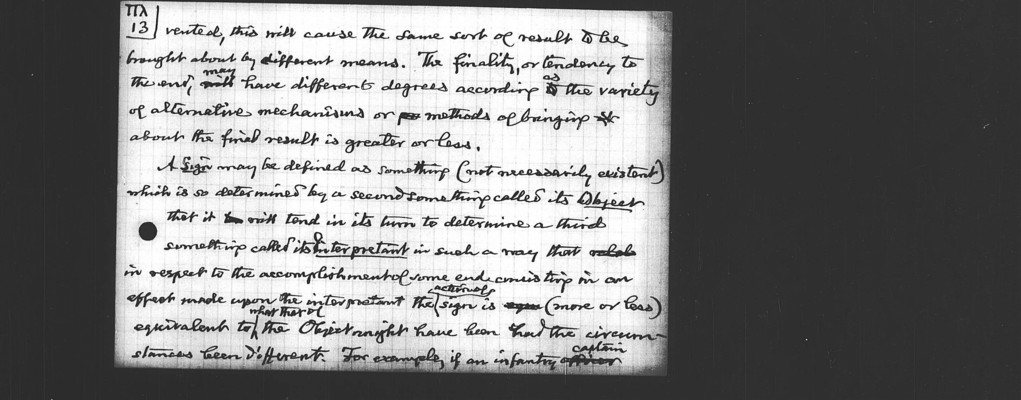 Πλ
13
vented, this will cause the same sort of result to be
brought about by different means. The finality, or tendency to
the end, may have different degrees according as the variety
of alternative mechanisms or methods of bringing
about the final result is greater or less.
A Sign may be defined as something (not necessarily existent)
which is so determined by a second something called its Object
that it will tend in its turn to determine a third
something called its Interpretant in such a way that
in respect to the accomplishment of some end consisting in an
effect made upon the interpretant the action of sign is (more or less)
equivalent to what that of the Object might have been had the circum-
stances been different. For example, if an infantry captain